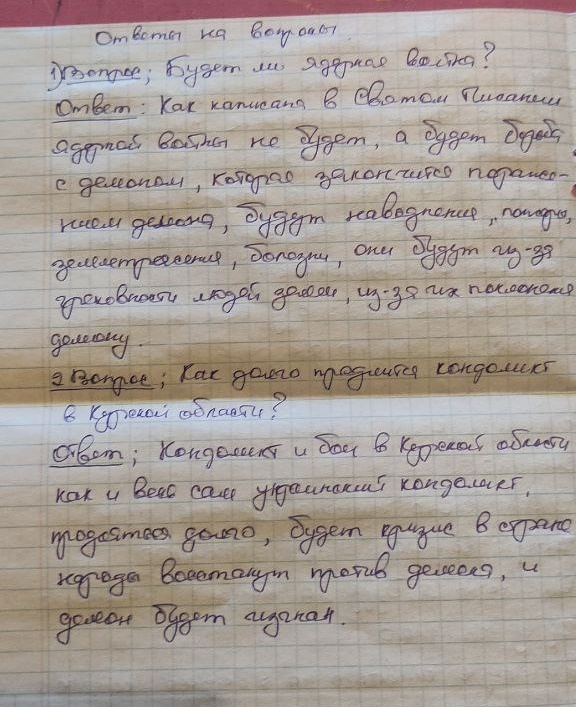 Ответы на вопросы.
1) Вопрос; Будет ли ядерная война?
Ответ: Как написано в Святом Писании
ядерной войны не будет, а будет борьба
с демоном, которая закончится пораже-
нием демона, будут наводнения, пожары,
землетресения, болезни, они будут из-за
греховности людей земли, из-за их поклонения
демону.
2 Вопрос; Как долго продлится конфликт
в Курской области?
Ответ; Конфликт и бои в Курской области
как и весь сам украинский конфликт,
продлятся долго, будет кризис в стране
народы восстанут против демона, и
демон будет изгнан.